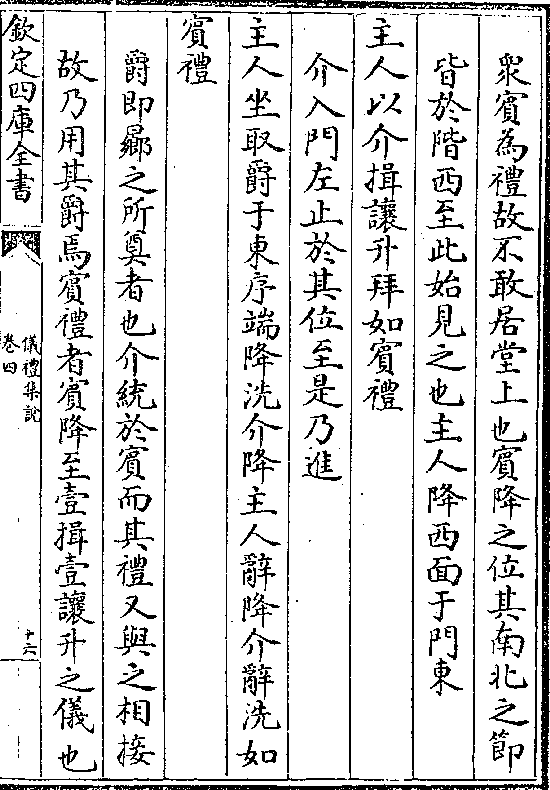 衆賓為禮故不敢居堂上也賓降之位其南北之節
皆於階西至此始見之也主人降西面于門東
主人以介揖讓升拜如賓禮
介入門左止於其位至是乃進
主人坐取爵于東序端降洗介降主人辭降介辭洗如
賓禮
爵即曏之所奠者也介統於賓而其禮又與之相接
故乃用其爵焉賓禮者賓降至壹揖壹讓升之儀也
欽定四庫全書
儀禮集說
卷四
十六